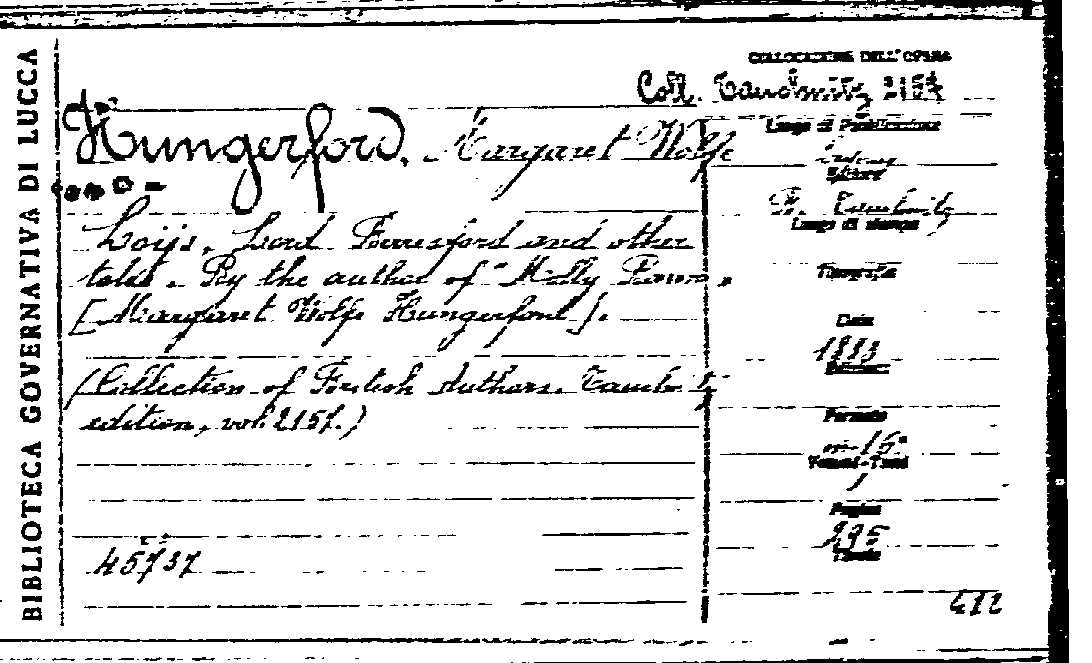 BIBLIOTECA GOVERNATIVA DI LUCCA
COLLOCAZIONE DELL'OPERA
Coll. Tauchnitz 2157
Hungerford, Margaret Wolfe
Loÿs, Lord Berresford and other
tales. By the author of "Molly Bawn"
[Margaret Wolfe Hungerford].
(Collection of British Authors. Tauchnitz
edition, vol. 2157.)
45737
Luogo di Pubblicazione
Editore
B. Tauchnitz
Luogo di stampa
Tipografia
Data
1883
Formato
in-16°
Tomi
1
Pagine
295
412